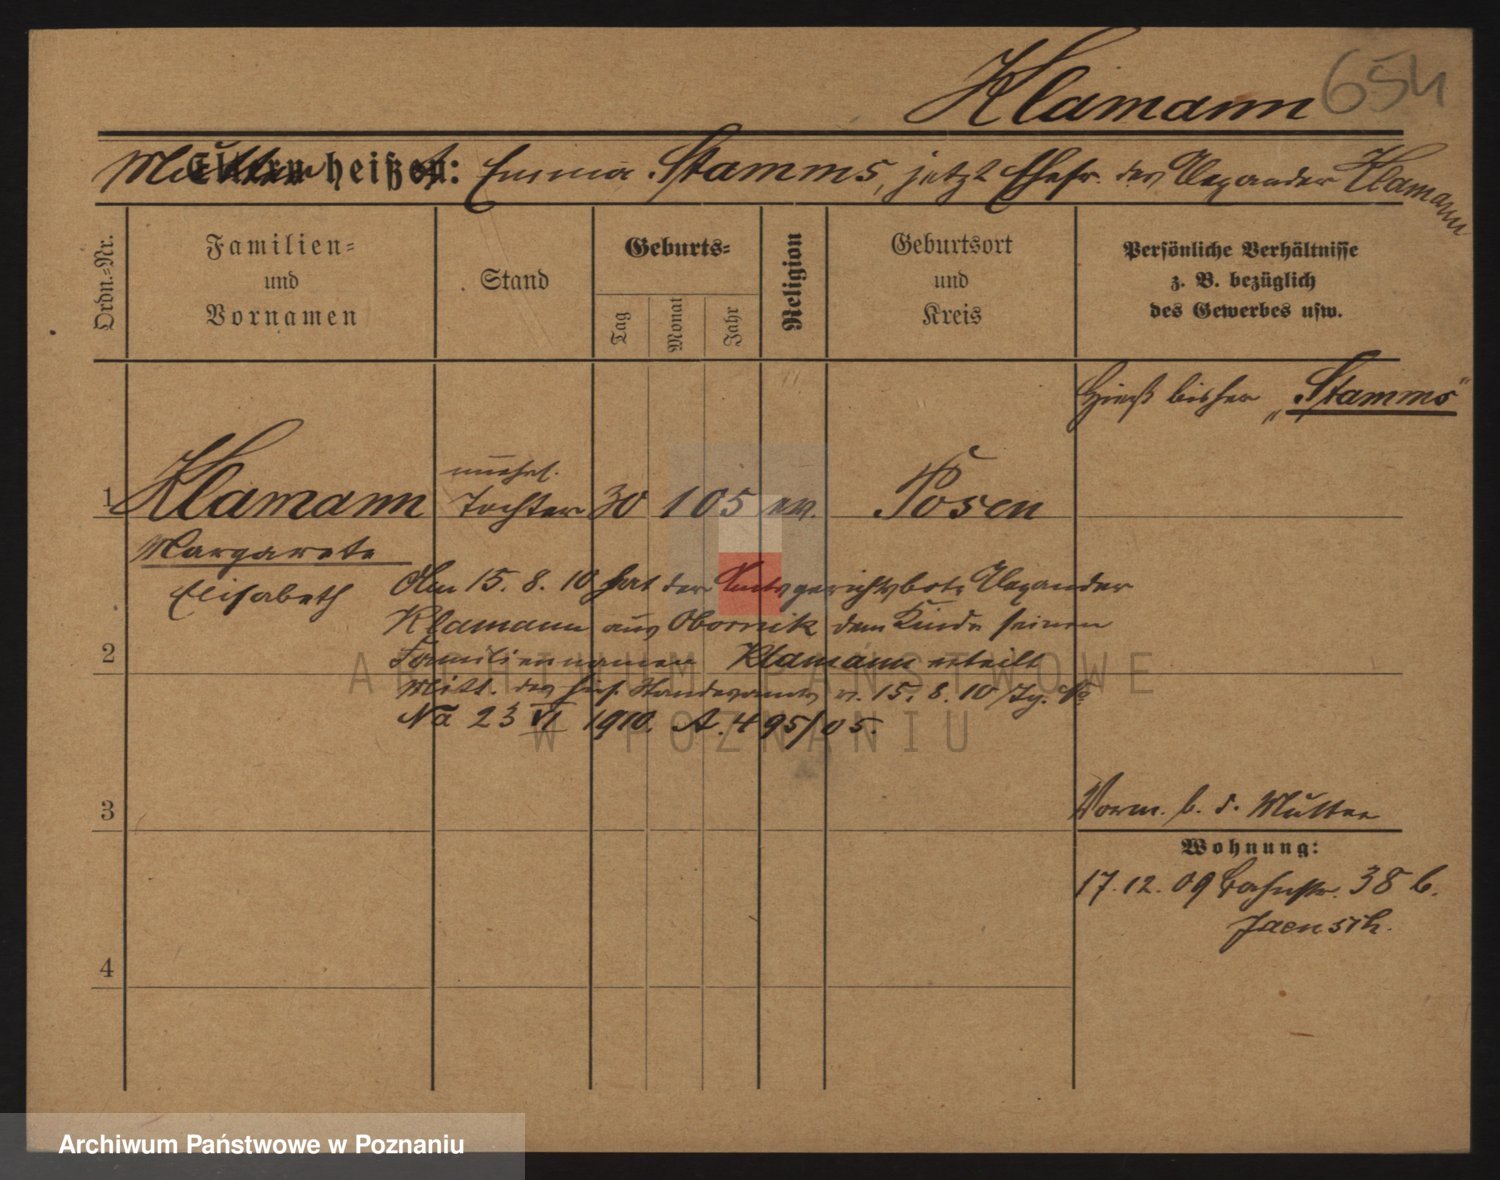 Klamann 654
Mutter heißt: Emma Stamms, jetzt Ehefr. des Alexander Klamann
Ordn.=Nr.
Familien=
und
Vornamen
Stand
Geburts=
Tag
Monat
Jahr
Religion
Geburtsort
und
Kreis
Persönliche Verhältnisse
z. B. bezüglich
des Gewerbes usw.
Hieß bisher „Stamms"
unehel.
1 Klamann Tochter 30 1 05 ev. Posen
Margarete
Elisabeth
Am 15. 8. 10 hat der Amtsgerichtsbote Alexander
Klamann aus Obornik dem Kinde seinen
Familiennamen Klamann erteilt
Mitt. des hies. Standesamts v. 15. 8. 10 /Tg. No
No 23 VI 1910. A. 495/05.
2
3
4
Vorm. b. d. Mutter
Wohnung:
17. 12. 09 Bahnstr. 38 b.
Jaensch.
ARCHIWUM PAŃSTWOWE
W POZNANIU
Archiwum Państwowe w Poznaniu